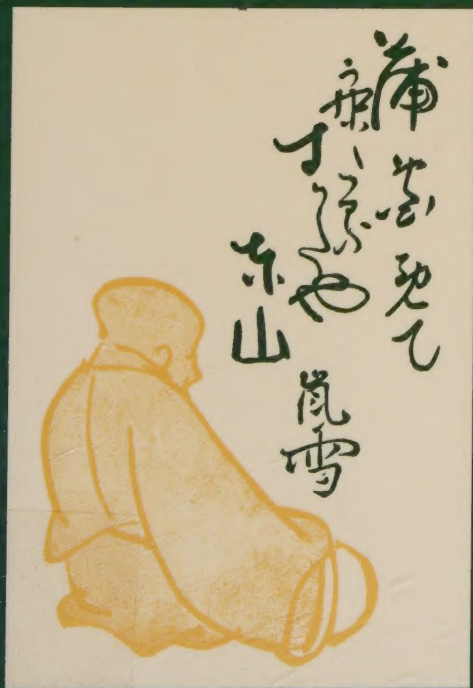 蒲団着て
寝たる姿や
東山
嵐雪